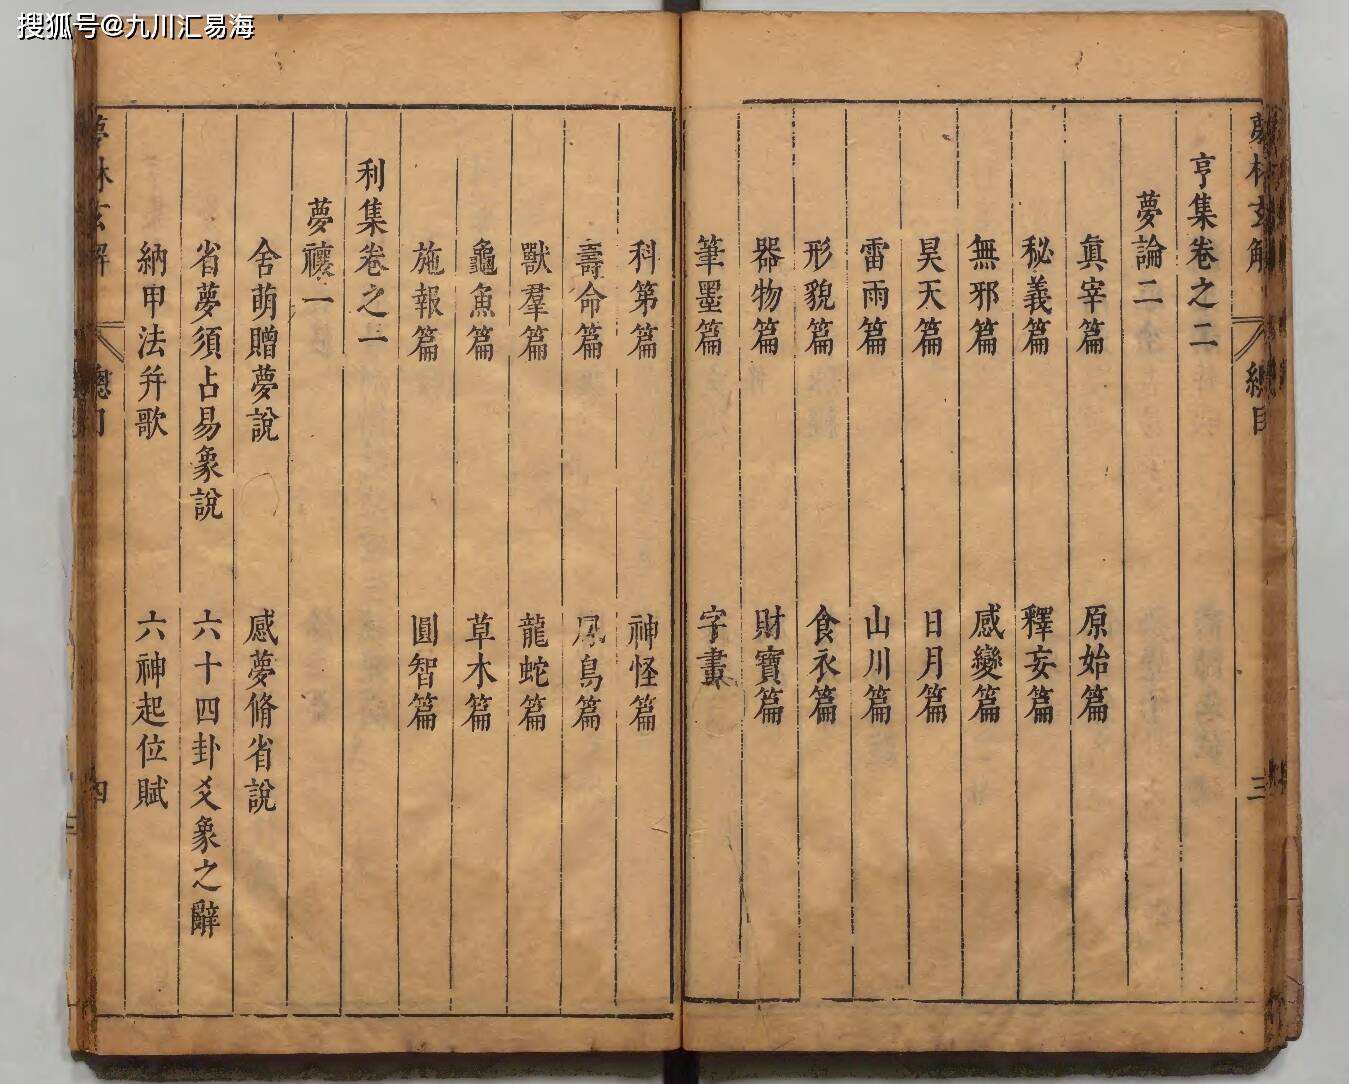 搜狐号@九川汇易海
夢林玄解
總目
三
亨集卷之二
夢論二
眞宰篇
原始篇
秘義篇
釋妄篇
無邪篇
感變篇
昊天篇
日月篇
雷雨篇
山川篇
形貌篇
食衣篇
器物篇
財寶篇
筆墨篇
字畫
科第篇
神怪篇
壽命篇
鳳鳥篇
獸羣篇
龍蛇篇
龜魚篇
草木篇
施報篇
圓智篇
利集卷之一
夢禳一
舍萌贈夢說
感夢脩省說
省夢須占易象說
六十四卦爻象之辭
納甲法幷歌
六神起位賦
夢林玄解
總目
四